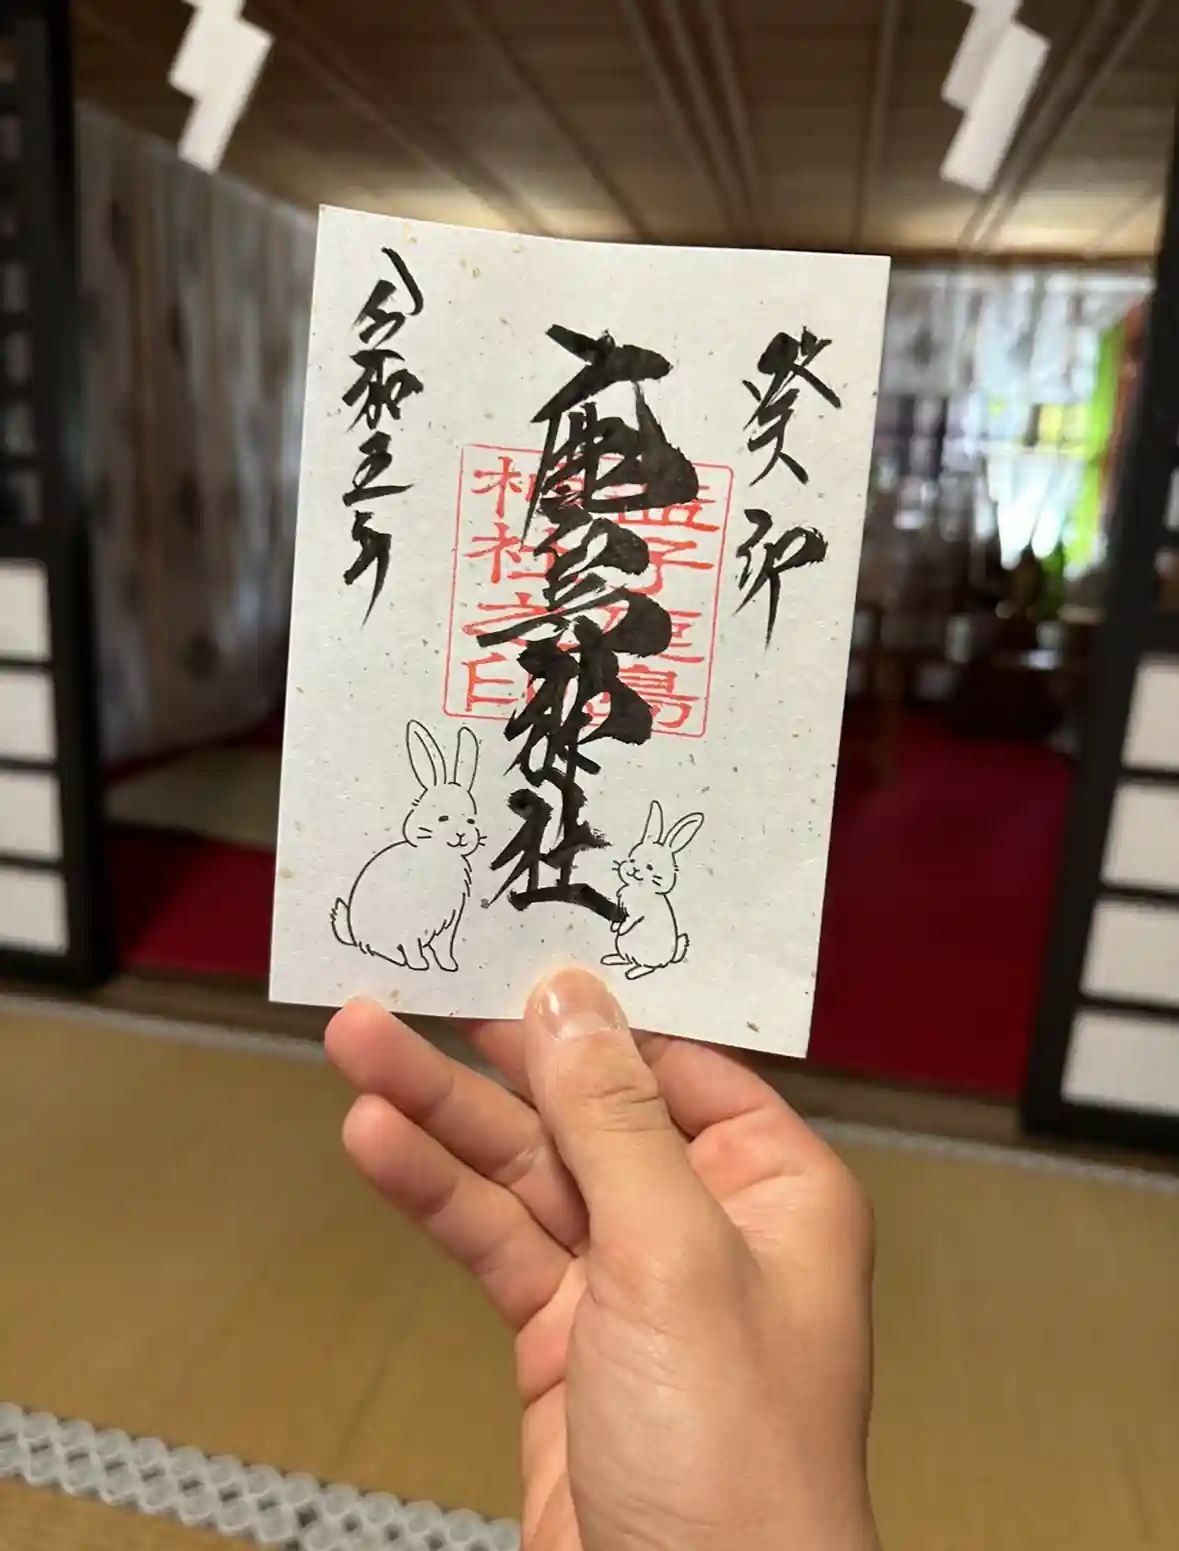 癸卯
鹿島神社
益子鹿島
神社之印
令和五年